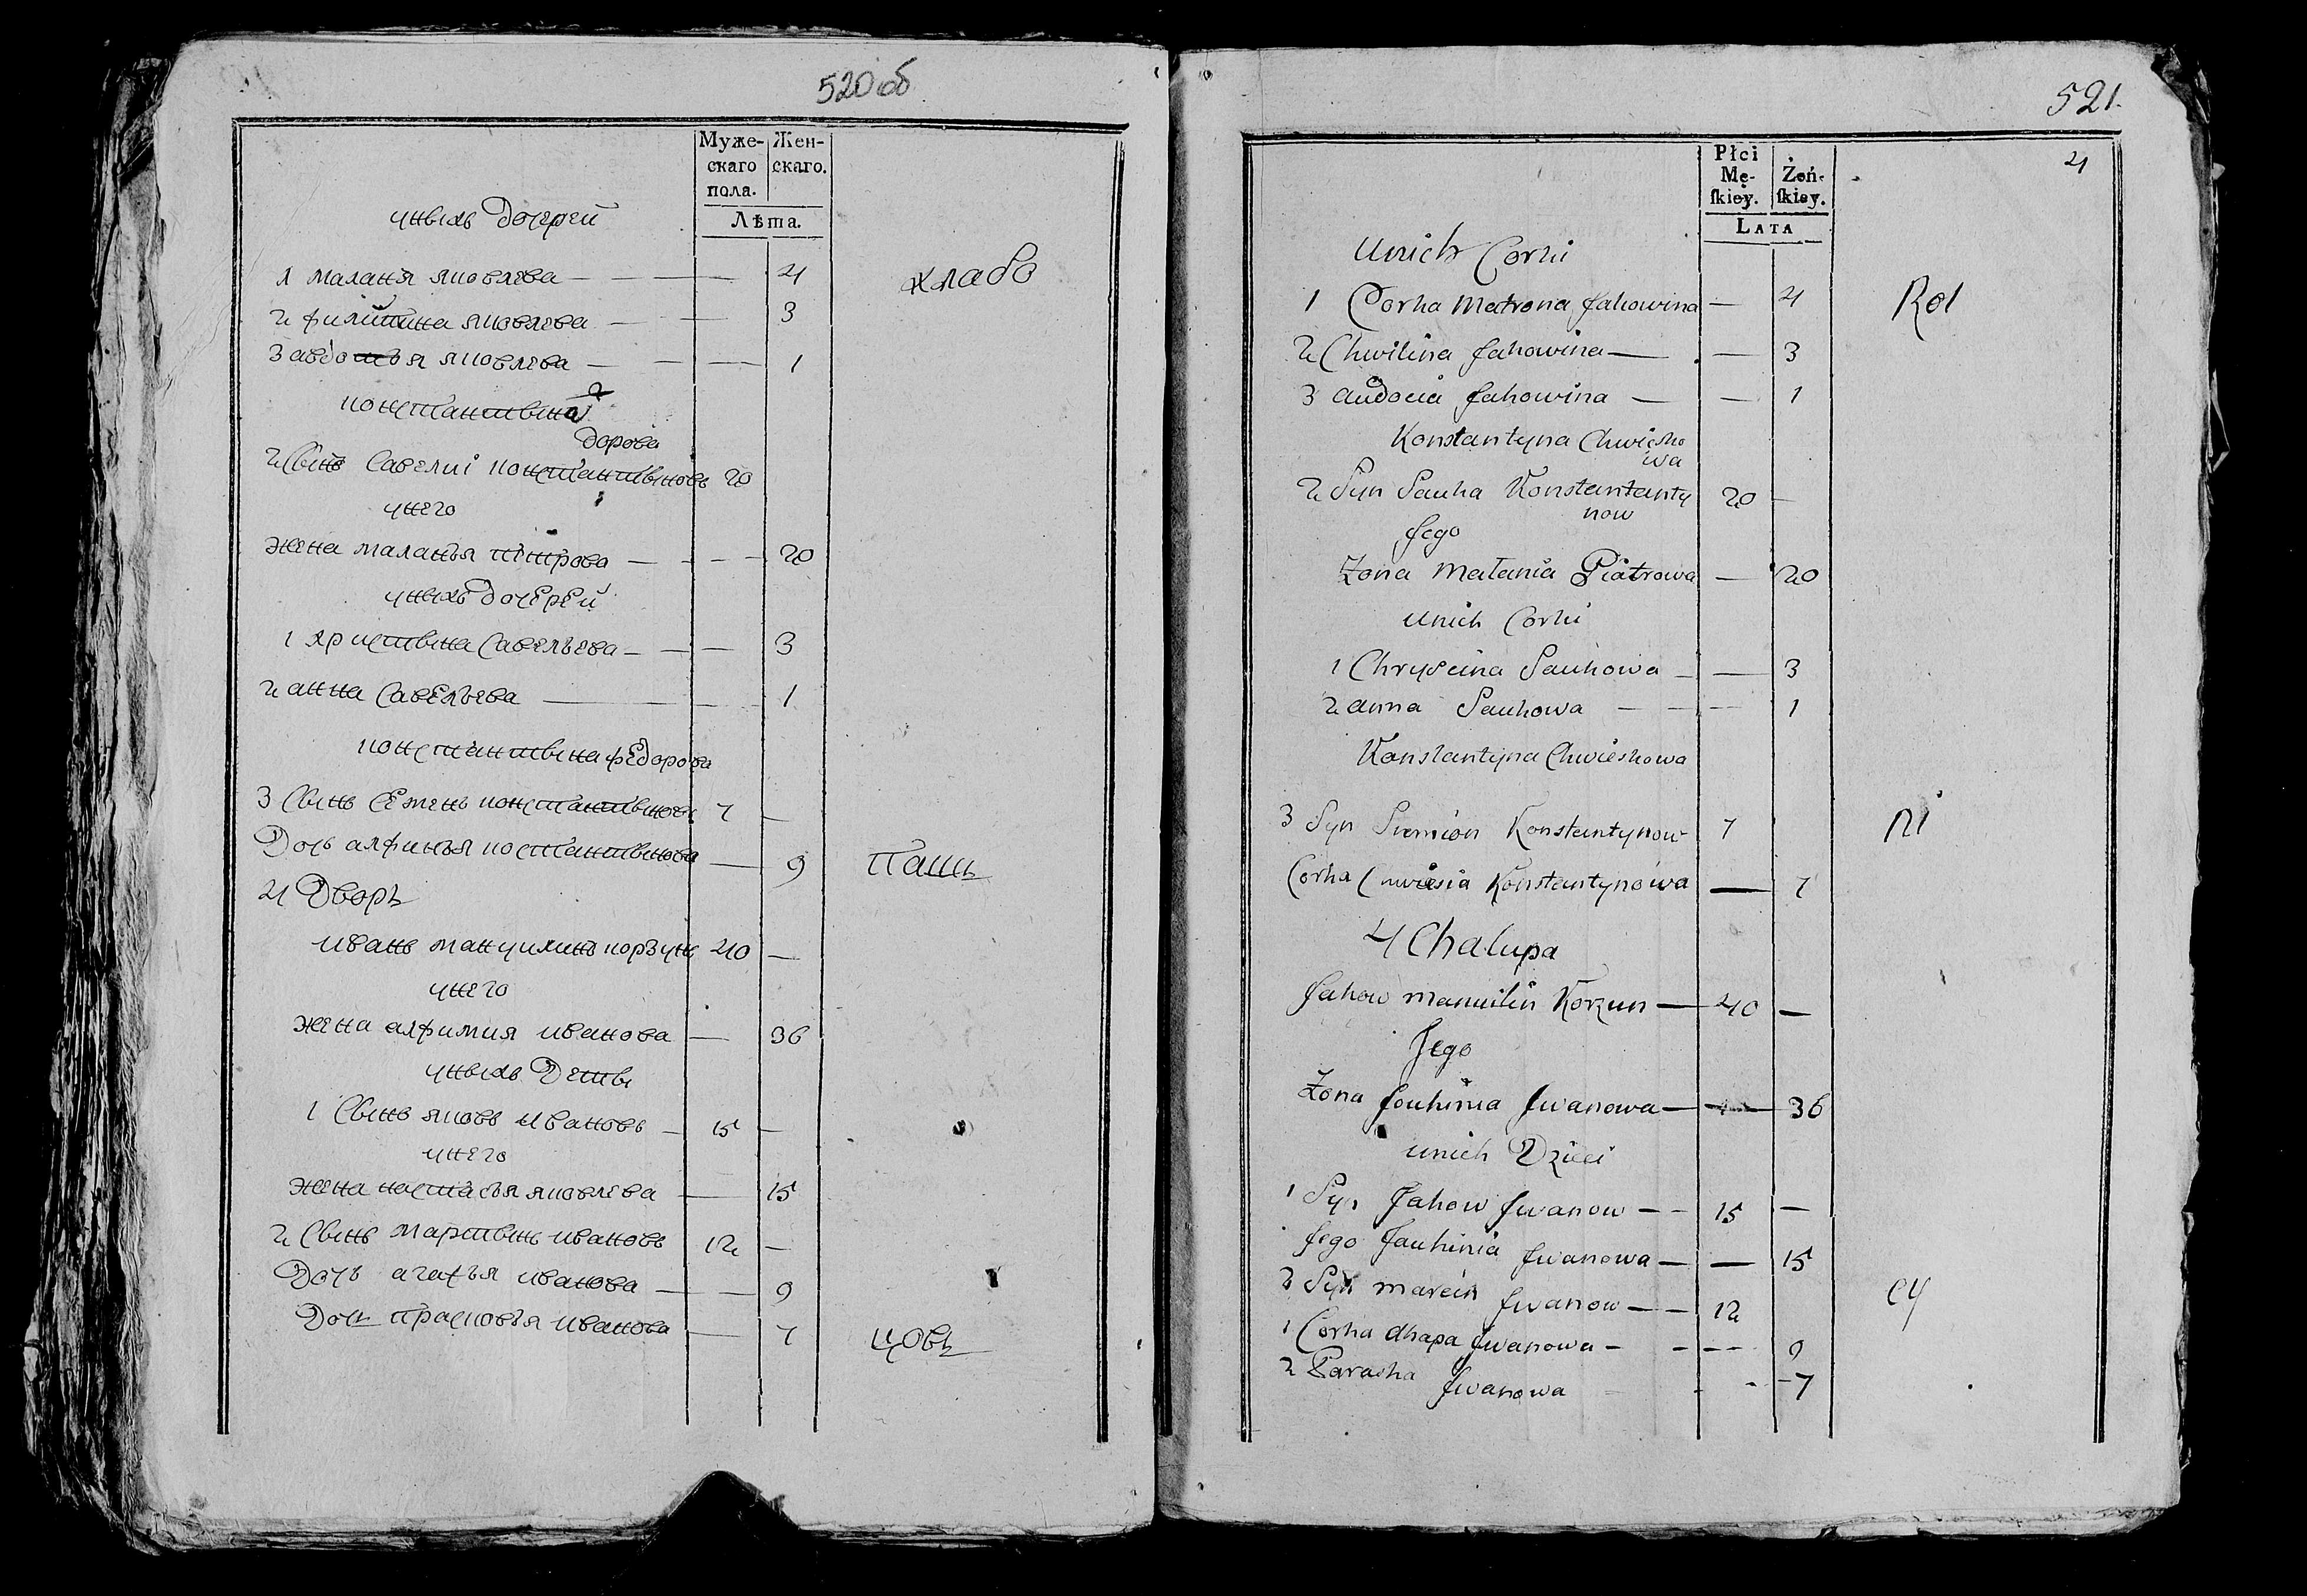 520 об
Муже-
скаго
пола.
Жен-
скаго.
Лѣта.
унихъ Дочерей
1 маланя яковлева — — — 4
хлабо
2 филитина яковлева — — 3
3 авдотья яковлева — — 1
константина
дорова
2 Сынъ Савелиi константиновъ 20
унего
жена маланья питрова — — — 20
унихъ Дочерей
1 христина Савельева — — — 3
2 анна Савельева — — — 1
константина федорова
3 Сынъ Семенъ константиновъ 7 —
Дочь алфинья костантинова — 9
пашц
4 Дворъ
иванъ мануилинъ корзунъ 40 —
унего
жена алфимия иванова — 36
унихъ Дети
1 Сынъ яковъ ивановъ — 15 —
унего
жена настасья яковлева — 15
2 Сынъ мартинъ ивановъ 12 —
Дочъ агафья иванова — — 9
Дочъ прасковья иванова — 7
цовъ
521.
4
Płci
Mę-
ſkiey.
Żeń-
ſkiey.
LATA
Unich Corki
1 Corka Matrona Jakowina — 4
Rol
2 Chwilina Jakowina — — 3
3 audocia Jakowina — — 1
Konstantyna Chwiesko
wa
2 Syn Sauka Konstantanty 20 —
now
Jego
Zona Matania Piatrowa — 20
unich Corki
1 Chryscina Saukowa — — 3
2 anna Saukowa — — — 1
Konstantyna Chwieskowa
3 Syn Siemion Konstantynow 7
ni
Corka Chwiesia Konstantynowa — 7
4 Chalupa
Jakow manuilin Korzun — 40 —
Jego
Zona Jouhinia Jwanowa — — 36
unich Dzieci
1 Syn Jakow Jwanow — — 15 —
Jego Jauhinia Jwanowa — — 15
2 Syn marcin Jwanow — — 12
cy
1 Corka ahapa Jwanowa — — — 9
2 Paraska Jwanowa - - 7